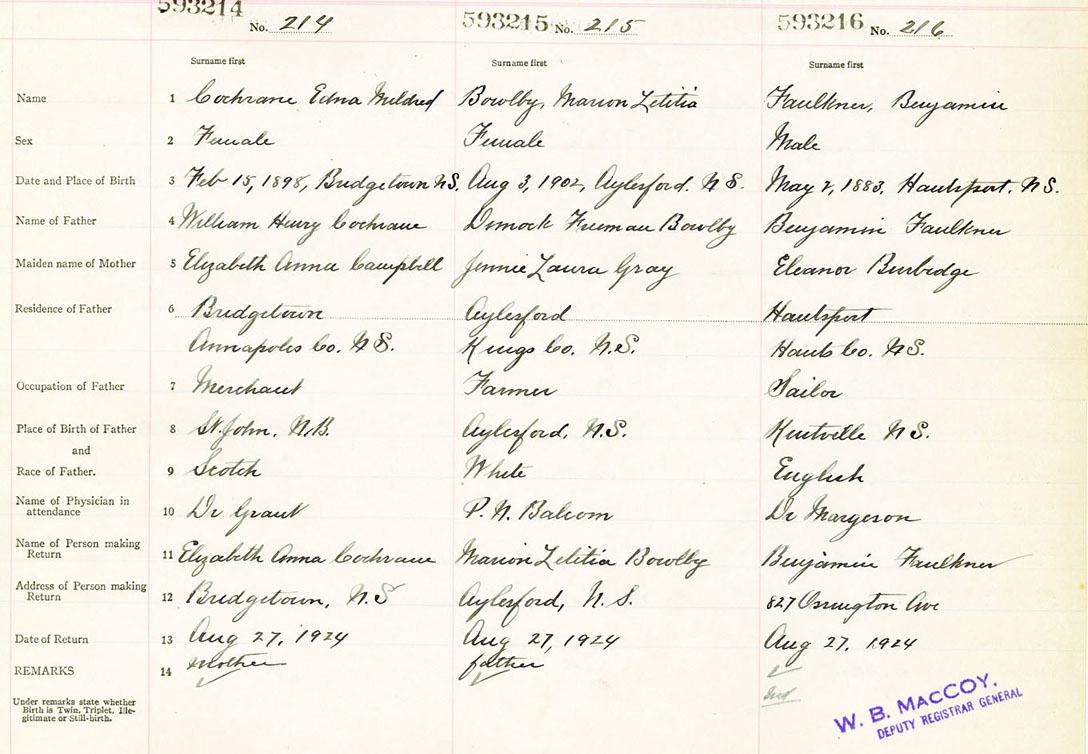 593214 No. 214 593215 No. 215 593216 No. 216
Surname first Surname first Surname first
Name 1 Cochrane Edna Mildred Bowlby, Marion Letitia Faulkner, Benjamin
Sex 2 Female Female Male
Date and Place of Birth 3 Feb 15, 1898, Bridgetown N.S. Aug 3, 1902, Aylesford. N.S. May 2, 1883, Hantsport, N.S.
Name of Father 4 William Henry Cochrane Dimock Freeman Bowlby Benjamin Faulkner
Maiden name of Mother 5 Elizabeth Anna Campbell Jennie Laura Gray Eleanor Burbidge
Residence of Father 6 Bridgetown Aylesford Hantsport
Annapolis Co. N.S. Kings Co. N.S. Hants Co. N.S.
Occupation of Father 7 Merchant Farmer Sailor
Place of Birth of Father 8 St. John, N.B. Aylesford, N.S. Kentville N.S.
and
Race of Father. 9 Scotch White English
Name of Physician in
attendance 10 Dr Grant P. N. Balcom Dr Margeson
Name of Person making
Return 11 Elizabeth Anna Cochrane Marion Letitia Bowlby Benjamin Faulkner
Address of Person making
Return 12 Bridgetown, N.S Aylesford, N.S. 827 Ossington Ave
Date of Return 13 Aug 27, 1924 Aug 27, 1924 Aug 27, 1924
REMARKS 14 mother father
Under remarks state whether
Birth is Twin, Triplet, Ille-
gitimate or Still-birth.
W. B. MACCOY.
DEPUTY REGISTRAR GENERAL